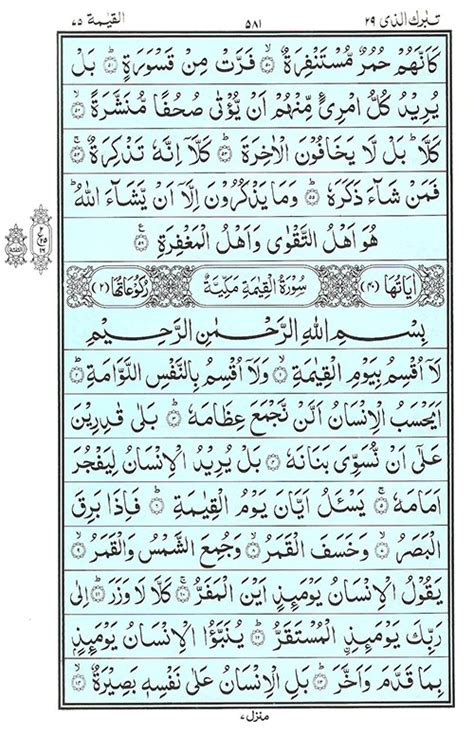 تبٰرك الذی ۲۹ ۵۸۱ القیٰمة ۷۵
كَاَنَّهُمْ حُمُرٌ مُّسْتَنْفِرَةٌ ۝۵۰ فَرَّتْ مِنْ قَسْوَرَةٍ ۝۵۱ بَلْ
يُرِيْدُ كُلُّ امْرِئٍ مِّنْهُمْ اَنْ يُّؤْتٰى صُحُفًا مُّنَشَّرَةً ۝۵۲
كَلَّا ؕ بَلْ لَّا يَخَافُوْنَ الْاٰخِرَةَ ۝۵۳ كَلَّاۤ اِنَّهٗ تَذْكِرَةٌ ۝۵۴
فَمَنْ شَآءَ ذَكَرَهٗ ۝۵۵ وَمَا يَذْكُرُوْنَ اِلَّاۤ اَنْ يَّشَآءَ اللّٰهُ ؕ
هُوَ اَهْلُ التَّقْوٰى وَاَهْلُ الْمَغْفِرَةِ ۝۵۶
اٰيَاتُهَا (۴۰) سُوْرَةُ الْقِيٰمَةِ مَكِّيَّةٌ رُكُوْعَاتُهَا (۲)
بِسْمِ اللّٰهِ الرَّحْمٰنِ الرَّحِيْمِ
لَاۤ اُقْسِمُ بِيَوْمِ الْقِيٰمَةِ ۝۱ وَلَاۤ اُقْسِمُ بِالنَّفْسِ اللَّوَّامَةِ ۝۲
اَيَحْسَبُ الْاِنْسَانُ اَلَّنْ نَّجْمَعَ عِظَامَهٗ ۝۳ بَلٰى قٰدِرِيْنَ
عَلٰۤى اَنْ نُّسَوِّىَ بَنَانَهٗ ۝۴ بَلْ يُرِيْدُ الْاِنْسَانُ لِيَفْجُرَ
اَمَامَهٗ ۝۵ يَسْـَٔلُ اَيَّانَ يَوْمُ الْقِيٰمَةِ ۝۶ فَاِذَا بَرِقَ
الْبَصَرُ ۝۷ وَخَسَفَ الْقَمَرُ ۝۸ وَجُمِعَ الشَّمْسُ وَالْقَمَرُ ۝۹
يَقُوْلُ الْاِنْسَانُ يَوْمَئِذٍ اَيْنَ الْمَفَرُّ ۝۱۰ كَلَّا لَا وَزَرَ ۝۱۱ اِلٰى
رَبِّكَ يَوْمَئِذِ ِۨالْمُسْتَقَرُّ ۝۱۲ يُنَبَّؤُا الْاِنْسَانُ يَوْمَئِذٍۢ
بِمَا قَدَّمَ وَاَخَّرَ ۝۱۳ بَلِ الْاِنْسَانُ عَلٰى نَفْسِهٖ بَصِيْرَةٌ ۝۱۴
منزل ۷